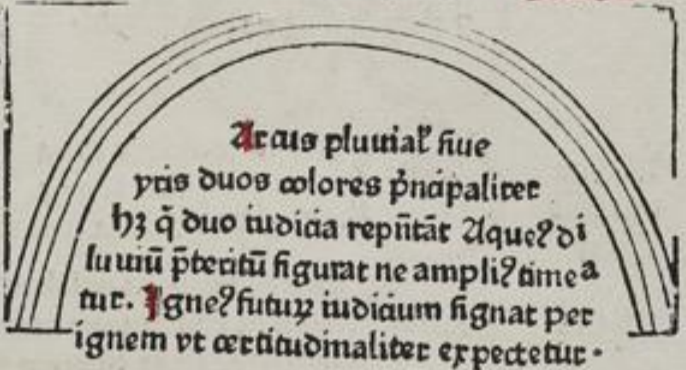 Arcus pluuial' siue
yris duos colores p̄ncipaliter
hꝫ q̄ duo iudicia rep̄ñtāt Aqueꝰ di
luuiū p̄teritū figurat ne ampliꝰ timea
tur. Igneꝰ futuꝝ iudicium signat per
ignem vt certitudinaliter expectetur.